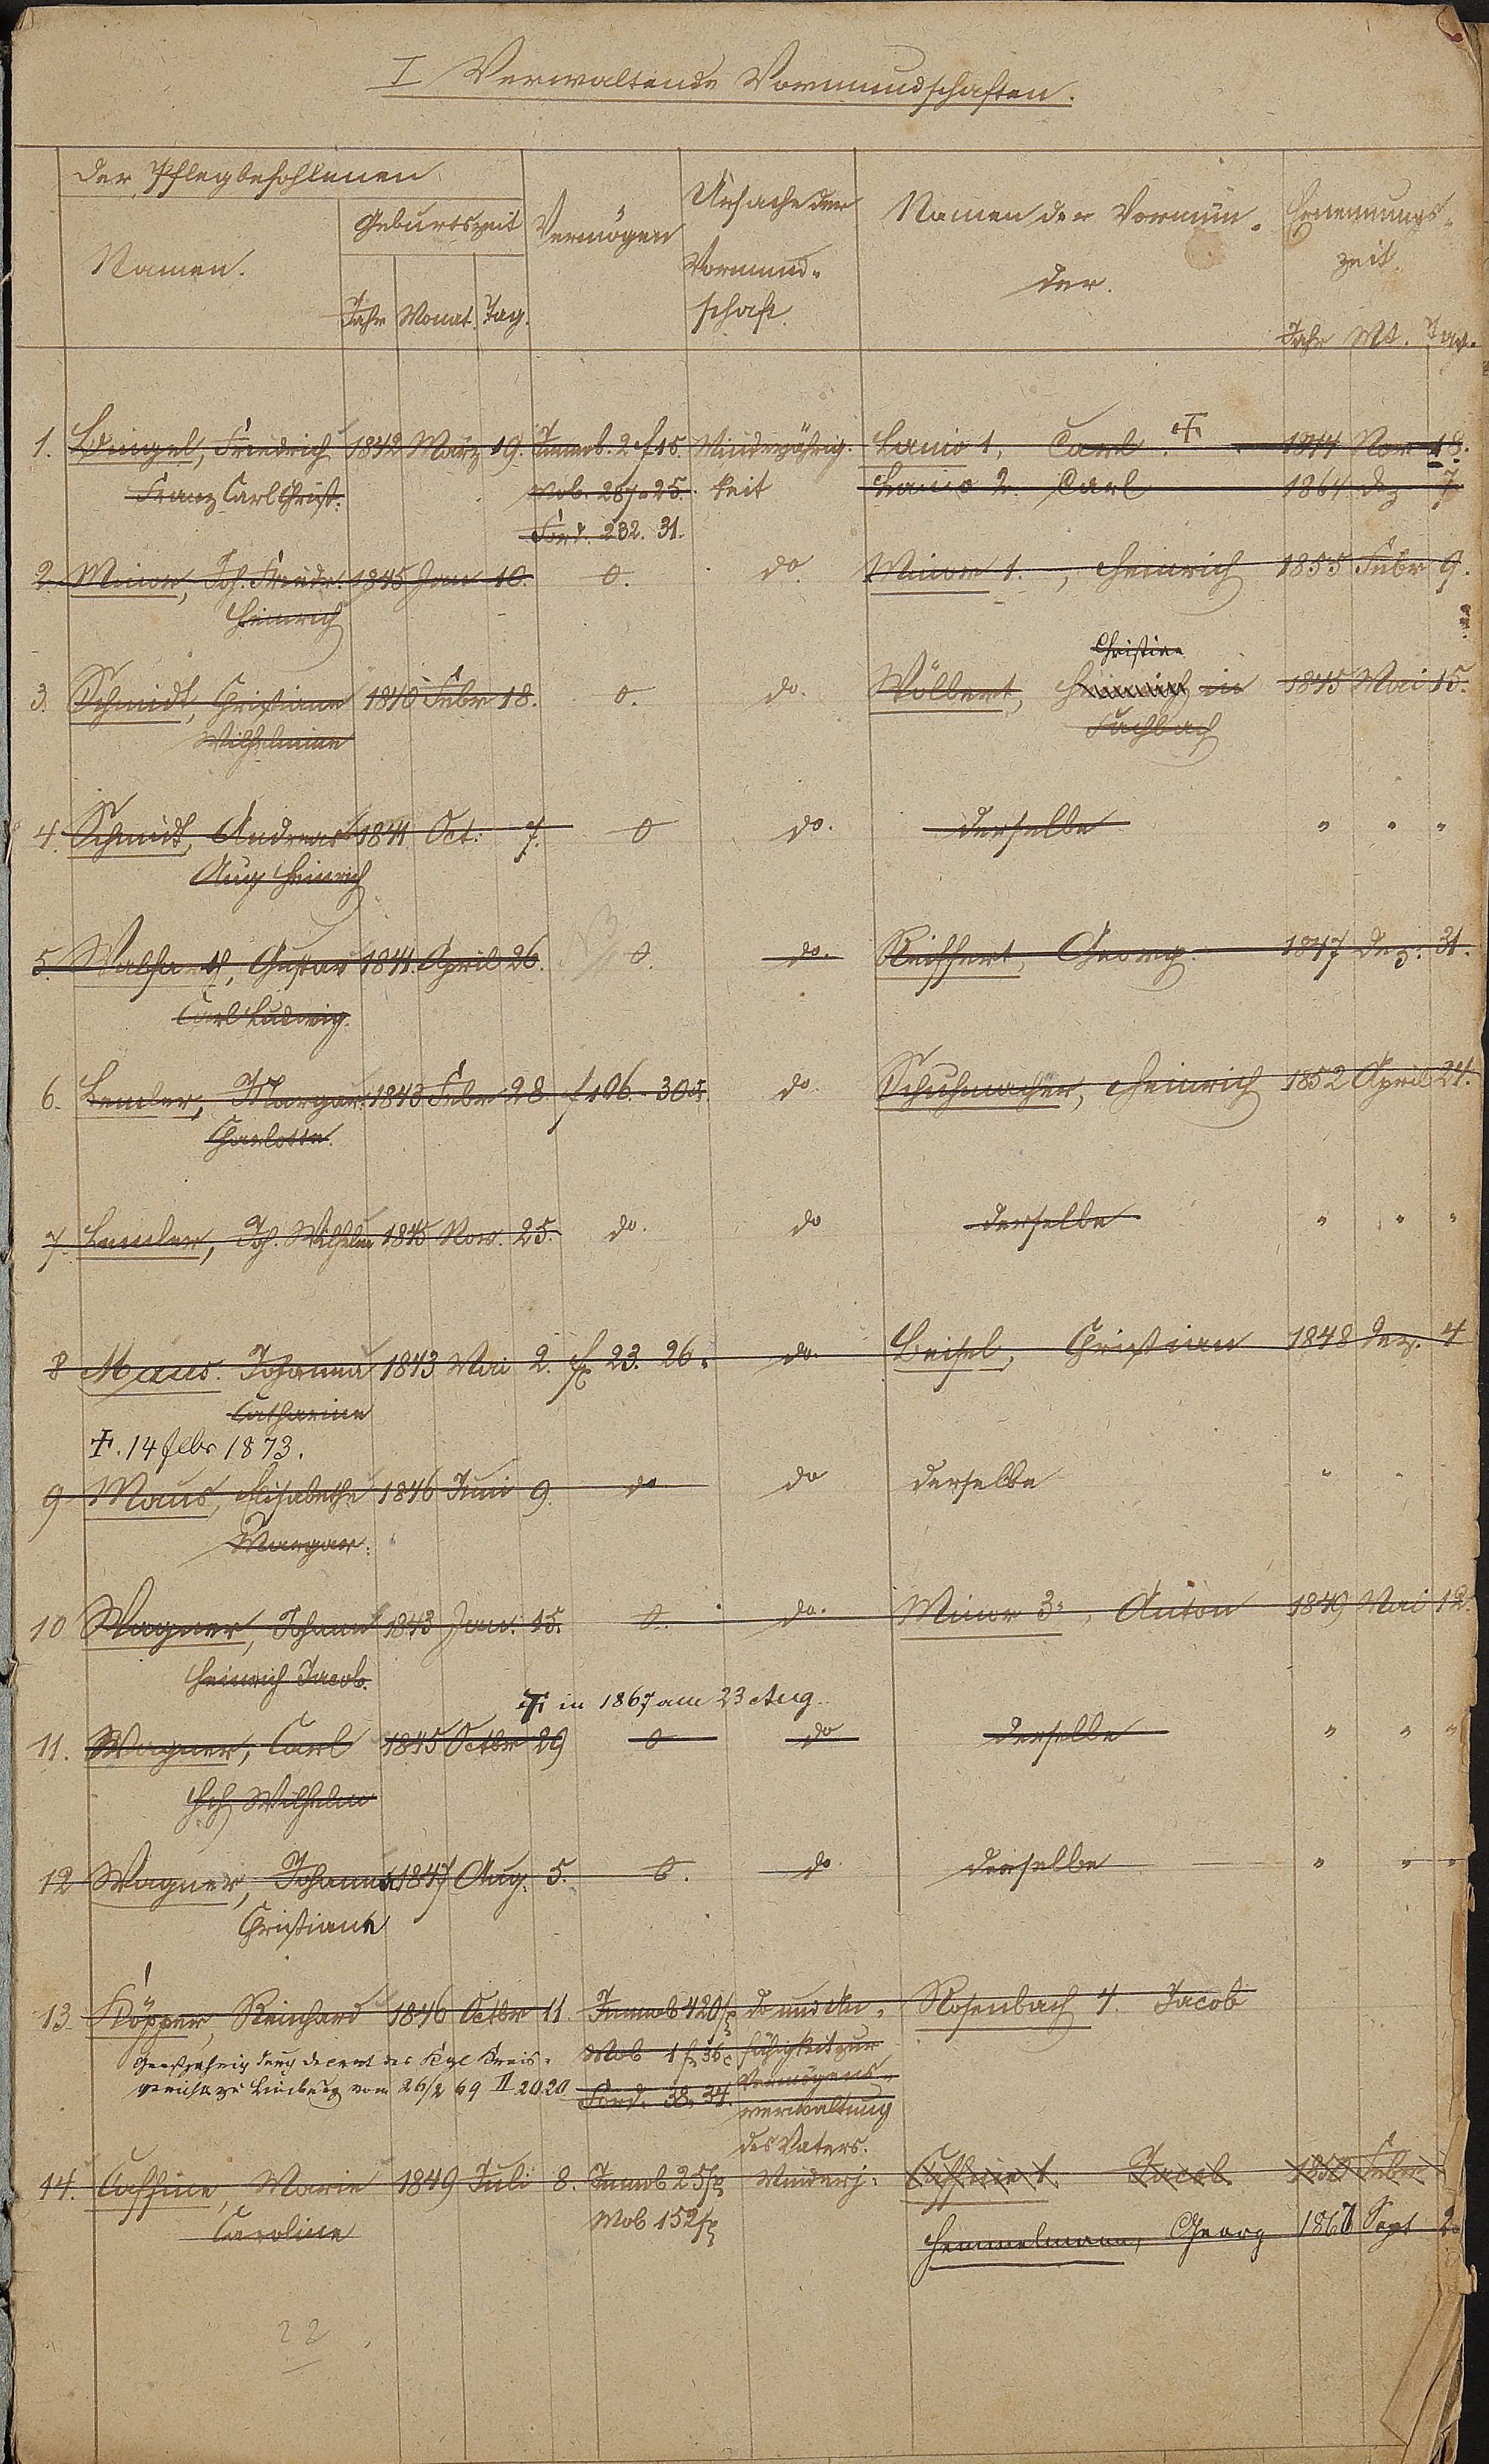 I Verwaltende Vormundschaften.
Der Pflegbefohlenen
Namen.
Geburtszeit
Jahr Monat. Tag.
Vermögen
Ursache der
Vormund-
schaft.
Namen der Vormün-
der.
Ernennungs-
zeit.
Jahr Mt. Tag.
1. Friedrich 1842 März 19. Immob. 2 f 15. Minderjährig- Lanio 1, Carl 1844 Nov 18.
Franz Carl Christ. Mob. 287 " 25. keit Lanio 2. Carl 1864 Dez 7
Ford. 232. 31.
2. Minor, Joh. Friedr. 1845 Jan 10. 0. do. Minor 1., Heinrich 1855 Febr 9.
Heinrich
Christian
3. Schmidt, Christiane 1840 Febr 18. 0. do. Wölbert, Heinrich in 1845 Mai 15.
Wilhelmine Fachbach
4. Schmidt, Andreas 1841 Oct: 7. 0 do. derselbe " " "
Aug Heinrich
5. Gustav 1841. April 26. 0. do. Reiffert, Georg. 1847 Dez: 31.
Carl Ludwig.
6. Lemler, Margar. 1843 Febr 28 f 106. 30 do Schuhmacher, Heinrich 1852 April 24.
Charlotte.
7. Lemler, Joh. Wilhelm 1845 Nov. 25. do. do derselbe " " "
8 Maus. Johanna 1843 Mai 2. f 23. 26. do. Beisel, Christian 1848 Dez. 4
Catharine
†. 14 febr 1873.
9 Maus, Elisabethe 1846 Juni 9. do do derselbe " "
Margar:
10 Wagner, Johann 1843 Jan: 15. 0. do. Minor 3., Anton 1849 Mai 12.
Heinrich Jacob.
† in 1867 am 23 Aug.
11. Wagner, Carl 1845 Octbr 29 0 do derselbe " " "
Hch Wilhelm
12 Wagner, Johanna 1847 Aug. 5. 0. do. derselbe " " "
Christiane
13. Köpper, Reinhard 1846 Octbr 11. Immob 420 f do und Un- Rosenbach 4. Jacob
Großjährig durch Decret des Kgl Kreis- Mob 1 f 36 fähigkeit zur
gerichts zu Limburg vom 26/2 69 II 2020 Ford. 38. 34. Vermögens-
verwaltung
des Vaters.
14. Caffine, Marie 1849 Juli 8. Immob 25 f Minderj: Caffine 1 Jacob 1850 Febr
Caroline Mob 152 f Hemmelmann, Georg 1867 Sept 2.
22